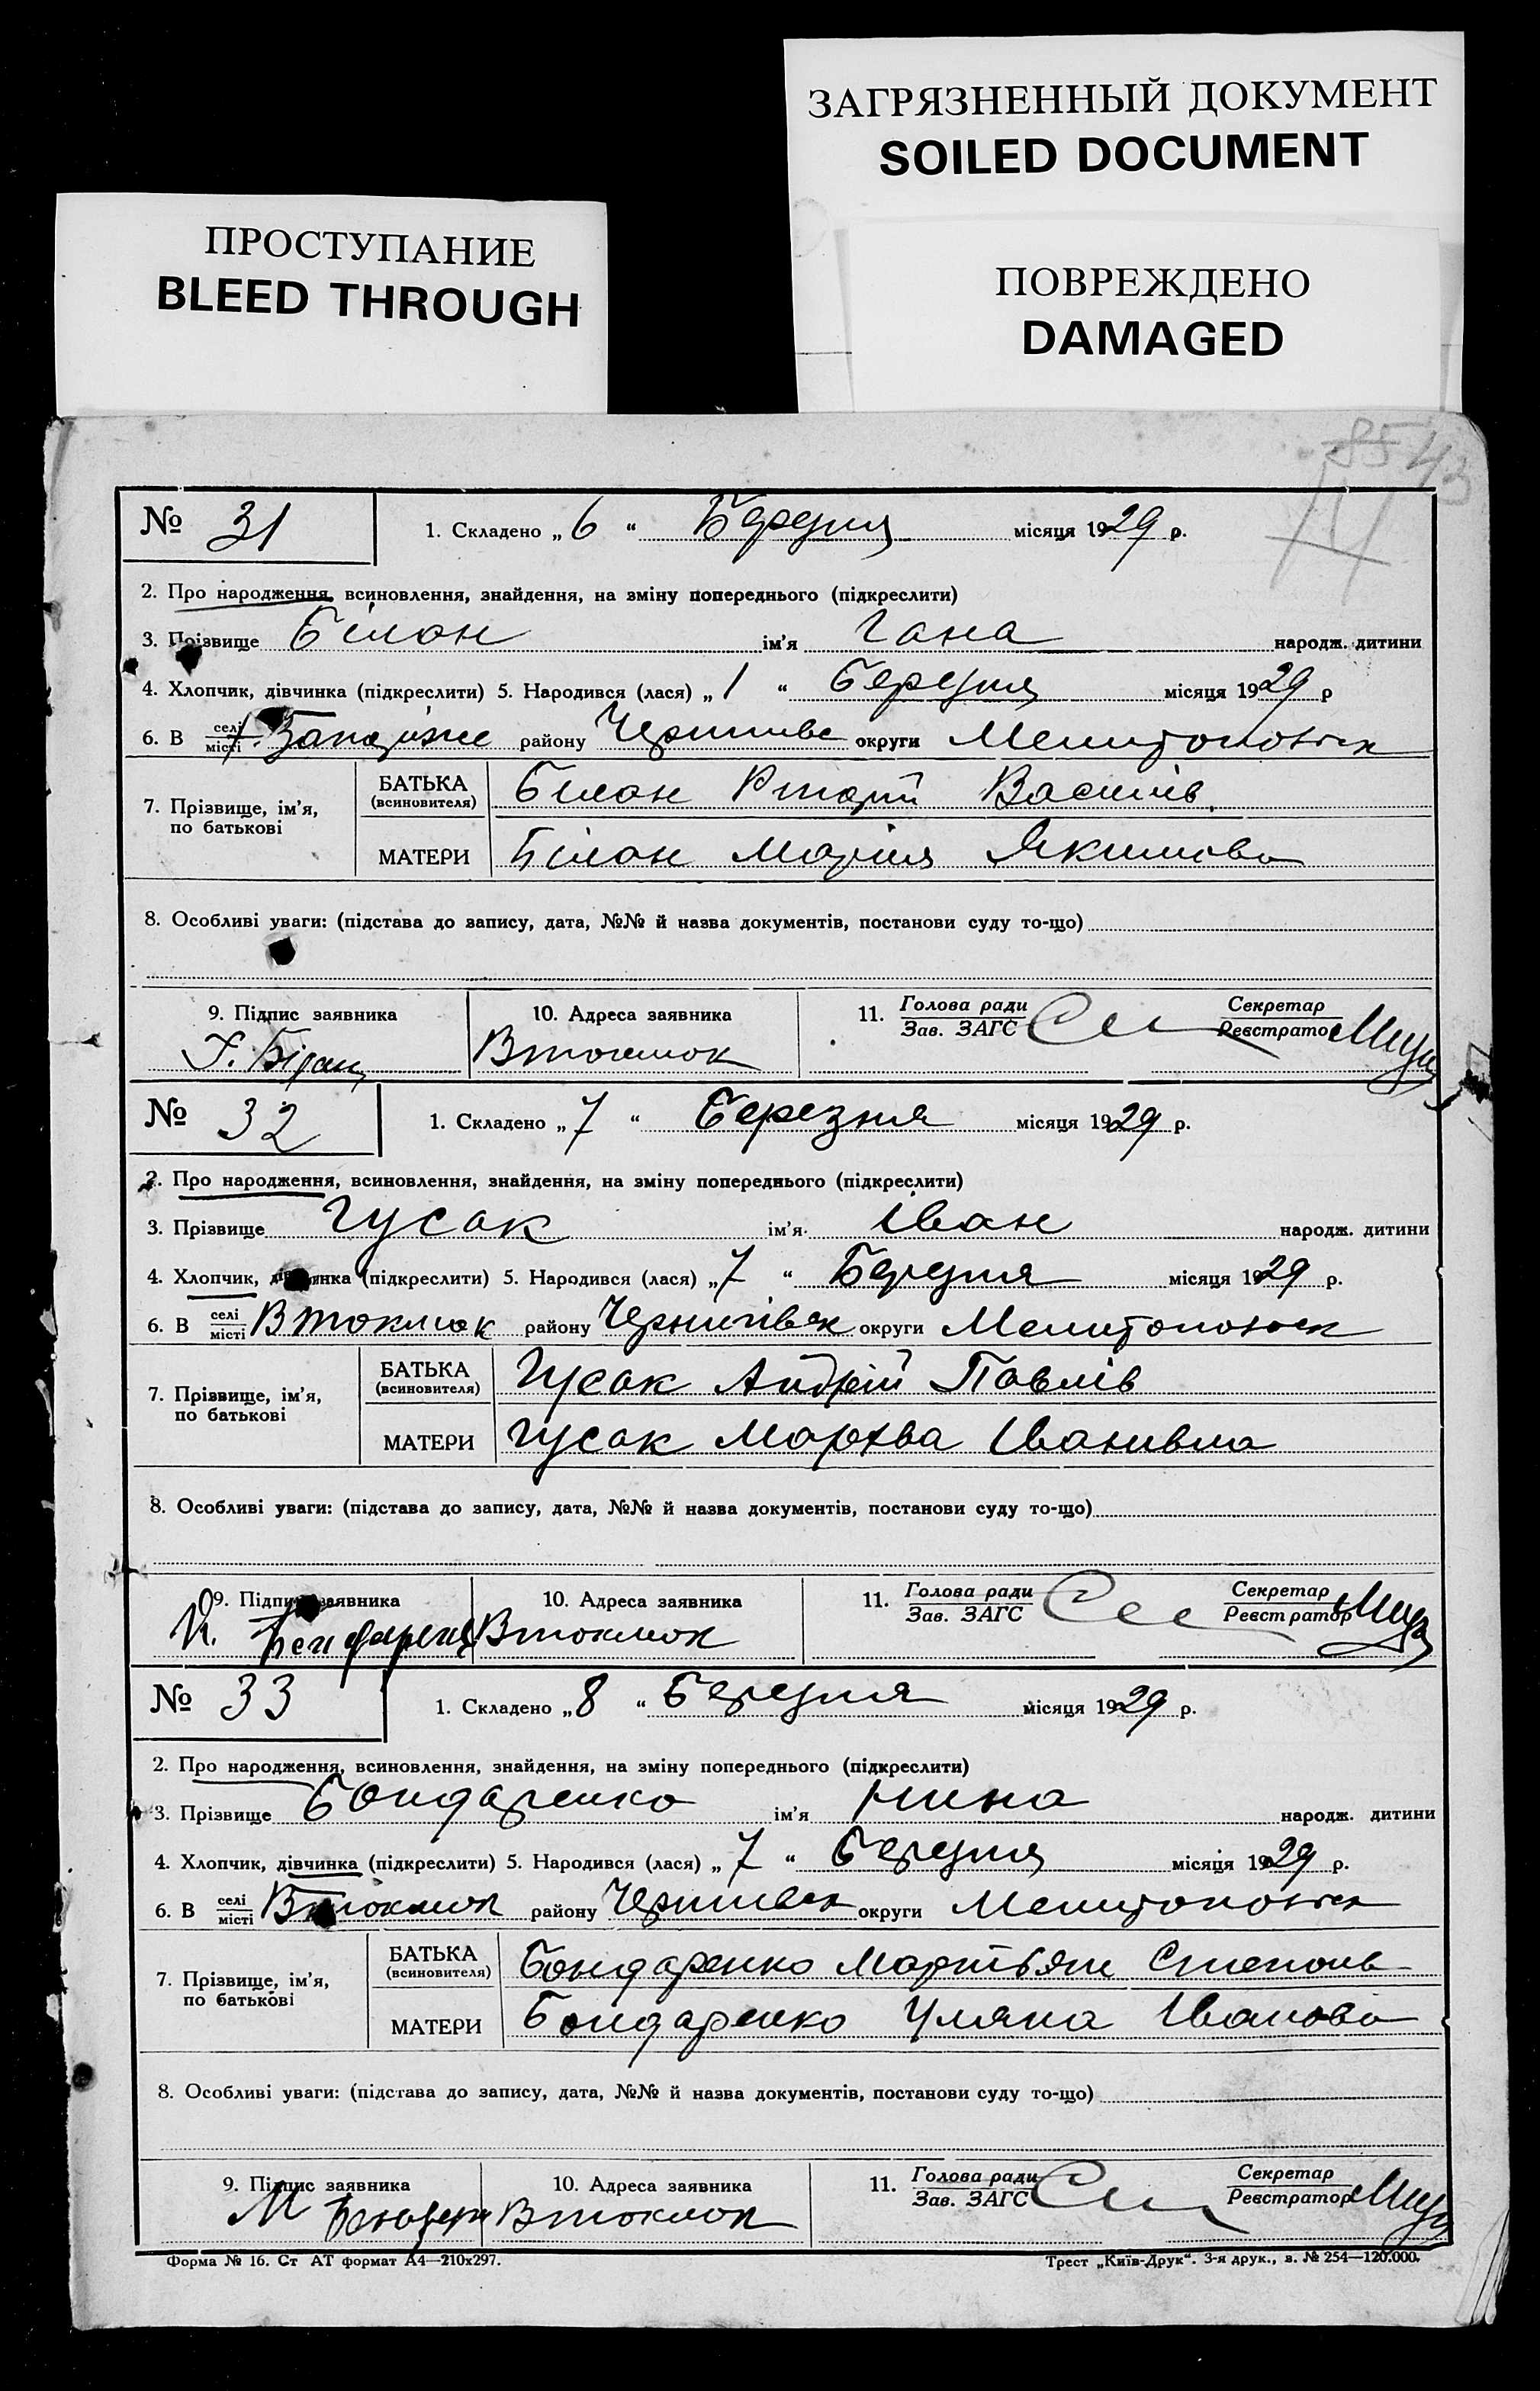 ЗАГРЯЗНЕННЫЙ ДОКУМЕНТ
SOILED DOCUMENT
ПРОСТУПАНИЕ
BLEED THROUGH
ПОВРЕЖДЕНО
DAMAGED
85 43
№ 31 1. Складено „ 6 “ Березня місяця 1929 р.
2. Про народження, всиновлення, знайдення, на зміну попереднього (підкреслити)
3. Прізвище Білан ім'я Гана народж. дитини
4. Хлопчик, дівчинка (підкреслити) 5. Народився (лася) „ 1 “ Березня місяця 1929 р
6. В селі місті району округи
7. Прізвище, ім'я, по батькові
БАТЬКА (всиновителя) Білан Василів
МАТЕРИ Білан Марія Якимова
8. Особливі уваги: (підстава до запису, дата, №№ й назва документів, постанови суду то-що)
9. Підпис заявника 10. Адреса заявника 11. Голова ради Зав. ЗАГС Секретар Реєстратор
Втокмок
№ 32 1. Складено „ 7 “ Березня місяця 1929 р.
2. Про народження, всиновлення, знайдення, на зміну попереднього (підкреслити)
3. Прізвище Гусак ім'я Іван народж. дитини
4. Хлопчик, дівчинка (підкреслити) 5. Народився (лася) „ 7 “ Березня місяця 1929 р.
6. В селі місті Втокмок району Чернигівськ округи Мелитопольськ
7. Прізвище, ім'я, по батькові
БАТЬКА (всиновителя) Гусак Андрій Павлів
МАТЕРИ Гусак Мархва Іванивна
8. Особливі уваги: (підстава до запису, дата, №№ й назва документів, постанови суду то-що)
9. Підпис заявника 10. Адреса заявника 11. Голова ради Зав. ЗАГС Секретар Реєстратор
Втокмок
№ 33 1. Складено „ 8 “ Березня місяця 1929 р.
2. Про народження, всиновлення, знайдення, на зміну попереднього (підкреслити)
3. Прізвище Бондаренко ім'я Нина народж. дитини
4. Хлопчик, дівчинка (підкреслити) 5. Народився (лася) „ 7 “ Березня місяця 1929 р.
6. В селі місті Втокмок району округи Мелитопольськ
7. Прізвище, ім'я, по батькові
БАТЬКА (всиновителя) Бондаренко Мартьян Степанів
МАТЕРИ Бондаренко Уляна Іванова
8. Особливі уваги: (підстава до запису, дата, №№ й назва документів, постанови суду то-що)
9. Підпис заявника 10. Адреса заявника 11. Голова ради Зав. ЗАГС Секретар Реєстратор
Втокмок
Форма № 16. Ст АТ формат А4—210x297. Трест „Київ-Друк“. 3-я друк., з. № 254—120.000.